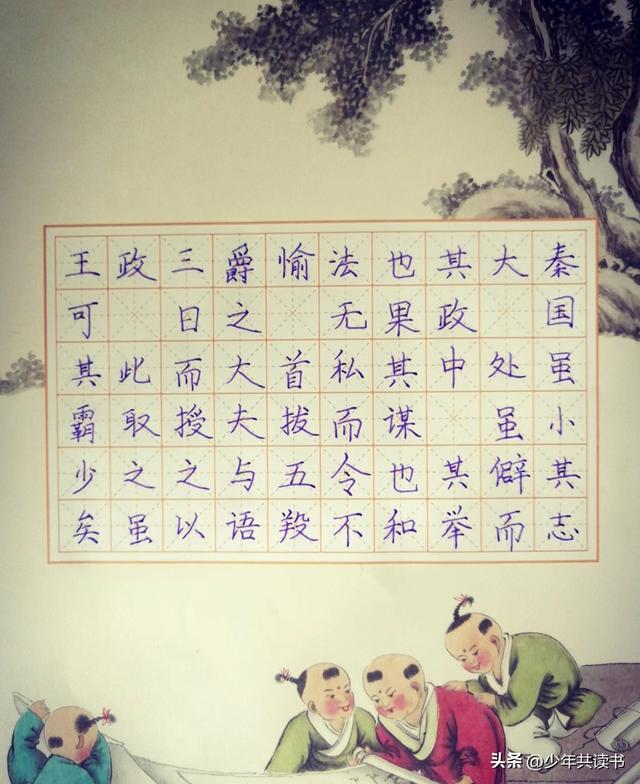 秦国虽小其志
大 处虽僻而
其政中 其举
也果其谋也和
法无私而令不
愉 首拔五羖
爵之大夫与语
三日而授之以
政 此取之虽
王可其霸少矣
头条 @少年共读书